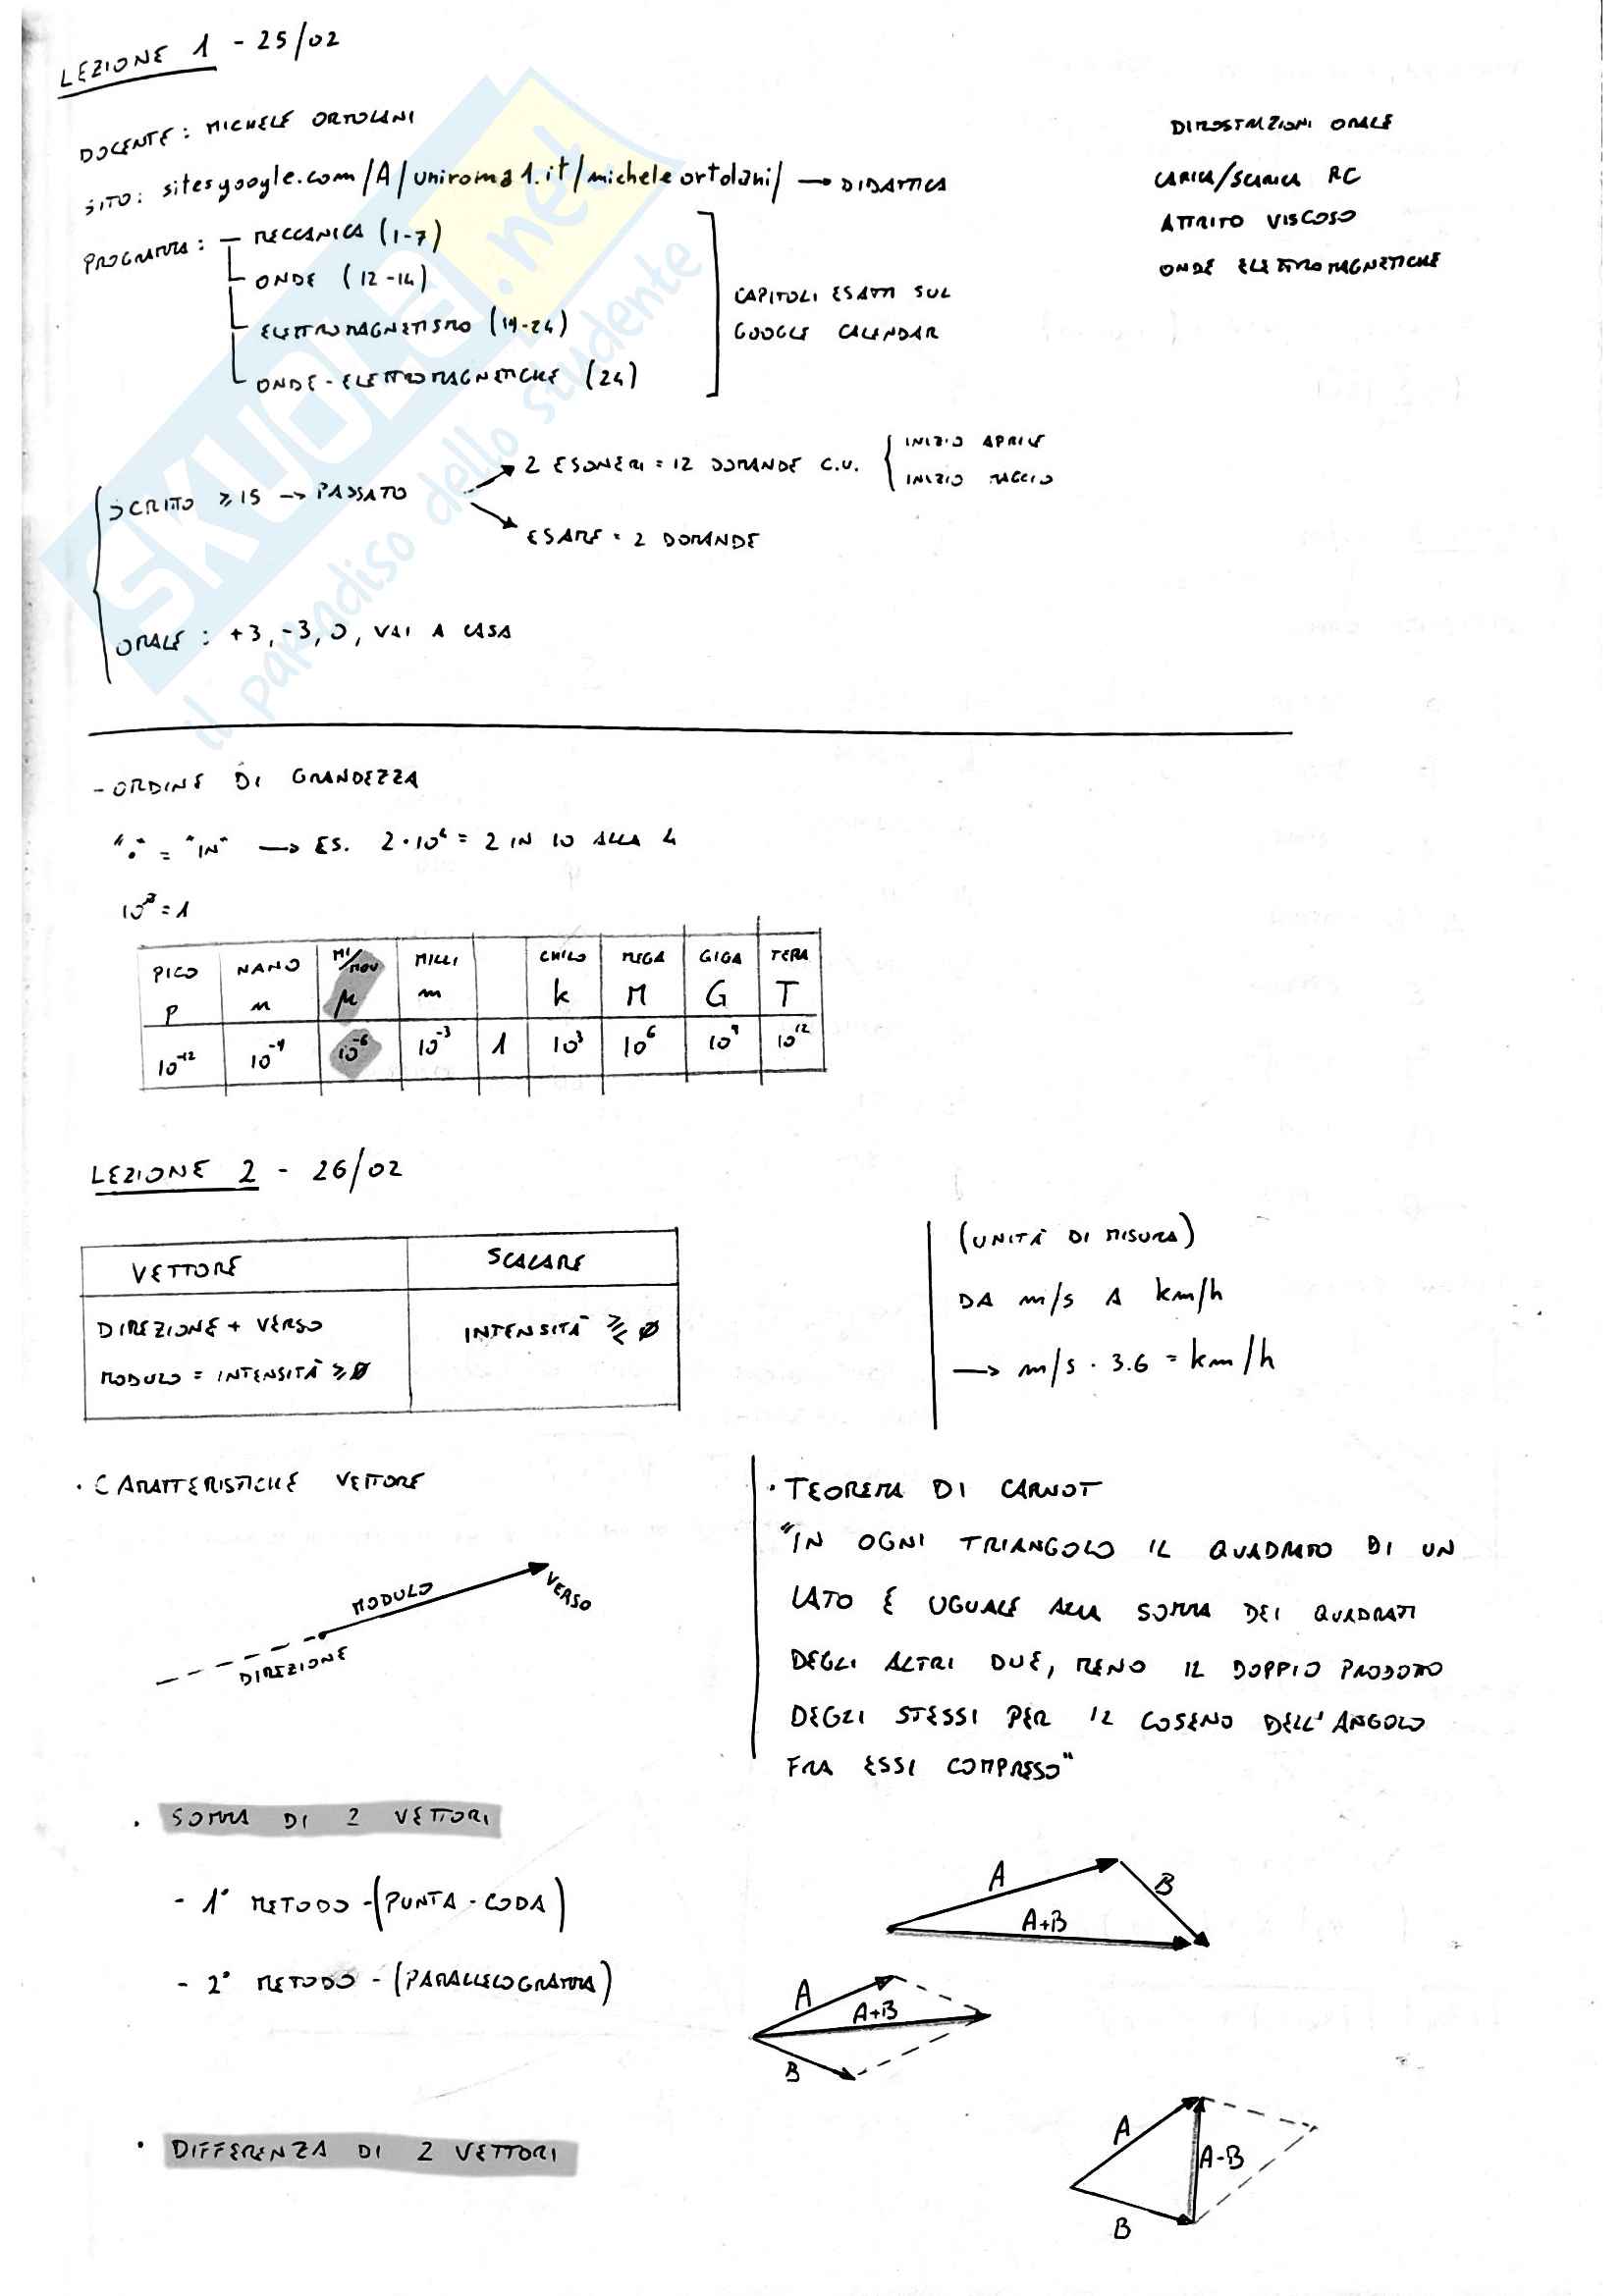 LEZIONE 1 - 25/02
DOCENTE: MICHELE ORTOLANI
SITO: sitesgoogle.com/A/uniroma1.it/michele ortolani/ → DIDATTICA
PROGRAMMA: - MECCANICA (1-7)
- ONDE (12-14)
- ELETTROMAGNETISMO (19-24)
- ONDE-ELETTROMAGNETICHE (24)
CAPITOLI ESATTI SUL
GOOGLE CALENDAR
DIMOSTRAZIONI ORALE
CARICA/SCARICA RC
ATTRITO VISCOSO
ONDE ELETTROMAGNETICHE
SCRITTO ≥15 → PASSATO
2 ESONERI = 12 DOMANDE C.U.
INIZIO APRILE
INIZIO MAGGIO
ESAME = 2 DOMANDE
ORALE: +3, -3, 0, VAI A CASA
SKUOLA.net
il paradiso dello studente
- ORDINE DI GRANDEZZA
"·" = "IN" → ES. 2·10⁴ = 2 IN 10 ALLA 4
10⁰ = 1
PICO NANO MI/MOU MILLI CHILO MEGA GIGA TERA
p n μ m k M G T
10⁻¹² 10⁻⁹ 10⁻⁶ 10⁻³ 1 10³ 10⁶ 10⁹ 10¹²
LEZIONE 2 - 26/02
VETTORE SCALARE
DIREZIONE + VERSO INTENSITÀ ≥≤ 0
MODULO = INTENSITÀ ≥ 0
(UNITÀ DI MISURA)
DA m/s A km/h
→ m/s · 3.6 = km/h
· CARATTERISTICHE VETTORE
MODULO
VERSO
DIREZIONE
· TEOREMA DI CARNOT
"IN OGNI TRIANGOLO IL QUADRATO DI UN
LATO È UGUALE ALLA SOMMA DEI QUADRATI
DEGLI ALTRI DUE, MENO IL DOPPIO PRODOTTO
DEGLI STESSI PER IL COSENO DELL'ANGOLO
FRA ESSI COMPRESO"
· SOMMA DI 2 VETTORI
- 1° METODO - (PUNTA - CODA)
A
B
A+B
- 2° METODO - (PARALLELOGRAMMA)
A
A+B
B
· DIFFERENZA DI 2 VETTORI
A
A-B
B